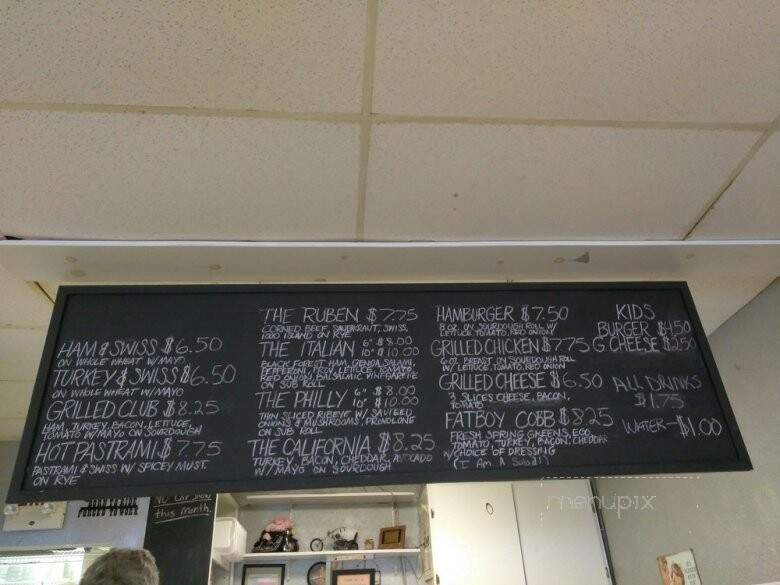 HAM & SWISS $6.50
ON WHOLE WHEAT W/MAYO
TURKEY & SWISS $6.50
ON WHOLE WHEAT W/MAYO
GRILLED CLUB $8.25
HAM, TURKEY, BACON, LETTUCE,
TOMATO W/MAYO ON SOURDOUGH
HOT PASTRAMI $7.75
PASTRAMI & SWISS W/ SPICEY MUST.
ON RYE
THE RUBEN $7.75
CORNED BEEF, SAUERKRAUT, SWISS,
1000 ISLAND ON RYE
THE ITALIAN 6" $8.00
10" $10.00
BLACK FOREST HAM, GENOA SALAMI,
PEPPERONI, PROV, LETTUCE, TOMATO,
RED ONION, BALSAMIC VINEGARETTE
ON SUB ROLL
THE PHILLY 6" $8.00
10" $10.00
THIN SLICED RIBEYE W/ SAUTEED
ONIONS & MUSHROOMS, PROVOLONE
ON SUB ROLL
THE CALIFORNIA $8.25
TURKEY, BACON, CHEDDAR, AVOCADO
W/MAYO ON SOURDOUGH
HAMBURGER $7.50
8 OZ. ON SOURDOUGH ROLL W/
LETTUCE, TOMATO, RED ONION
GRILLED CHICKEN $7.75
6 OZ. BREAST ON SOURDOUGH ROLL
W/ LETTUCE, TOMATO, RED ONION
GRILLED CHEESE $6.50
3 SLICES CHEESE, BACON,
TOMATO
FATBOY COBB $8.25
FRESH SPRING GREENS, EGG,
TOMATO, TURKEY, BACON, CHEDDAR
W/CHOICE OF DRESSING
(I Am A Salad!)
KIDS
BURGER $4.50
G. CHEESE $3.50
ALL DRINKS
$1.75
WATER - $1.00
menupix
this month.